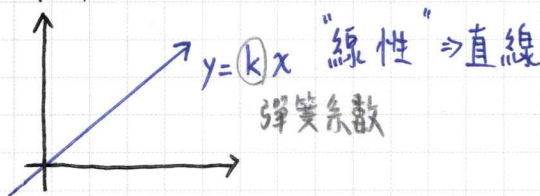 y=kx "線性"⇒直線
彈簧系數